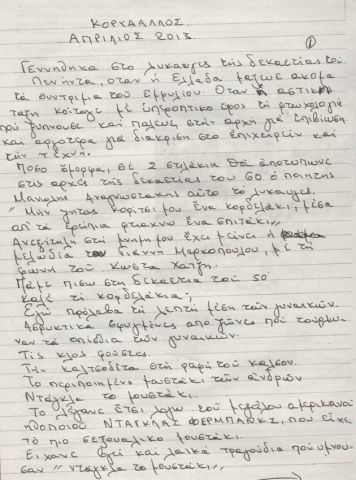 ΚΟΡΥΔΑΛΛΟΣ
ΑΠΡΙΛΙΟΣ 2013
1
Γεννήθηκα στο λυκαυγές της δεκαετίας του
Πενήντα, όταν η Ελλάδα μάζευε ακόμα
τα συντρίμια του Εμφυλίου. Όταν η αστική
τάξη κοίταζε με υπεροπτικό ύφος τη φτωχολογιά
πού ξυπνούσε και πάλευε στην αρχή γιά επιβίωση
και αργότερα γιά διάκριση στο επιχειρείν και
την τέχνη.
Πόσο όμορφα, σέ 2 στιχάκια θά αποτυπώνε
στις αρχές της δεκαετίας του 60 ο ποιητής
Μανώλης Αναγνωστάκης αυτό το λυκαυγές.
"Μην ζητάς κορίτσι μου ένα κορδελάκι, μέσα
απ τα ερείπια φτιάχνω ένα σπιτάκι,,
Ανεξίτηλη στη μνήμη μου έχει μείνει η
μελωδία του Γιάννη Μαρκόπουλου, μέ τη
φωνή του Κώστα Χατζή.
Πάμε πίσω στη δεκαετία του 50
Καλέ τί κορδελάκια;
Εγώ πρόλαβα τη λεπτή μέση των γυναικών.
Ασφυκτικά σφιγμένες από ζώνες πού τόνιζαν
τα οπίσθια των γυναικών.
Τίς κλος φούστες.
Την καλτσοδέτα στη ραφή του καλσόν.
Το περιποιημένο μουστάκι των ανδρών
Ντάγκλα το μουστάκι.
Το λέγανε έτσι λόγω του μεγάλου αμερικανού
ηθοποιού ΝΤΑΓΚΛΑΣ ΦΕΡΜΠΑΝΚΣ, που είχε
το πιο σεξουαλικό μουστάκι.
Είχανε βγεί και λαϊκά τραγούδια πού υμνού-
σαν "Ντάγκλα το μουστάκι,,